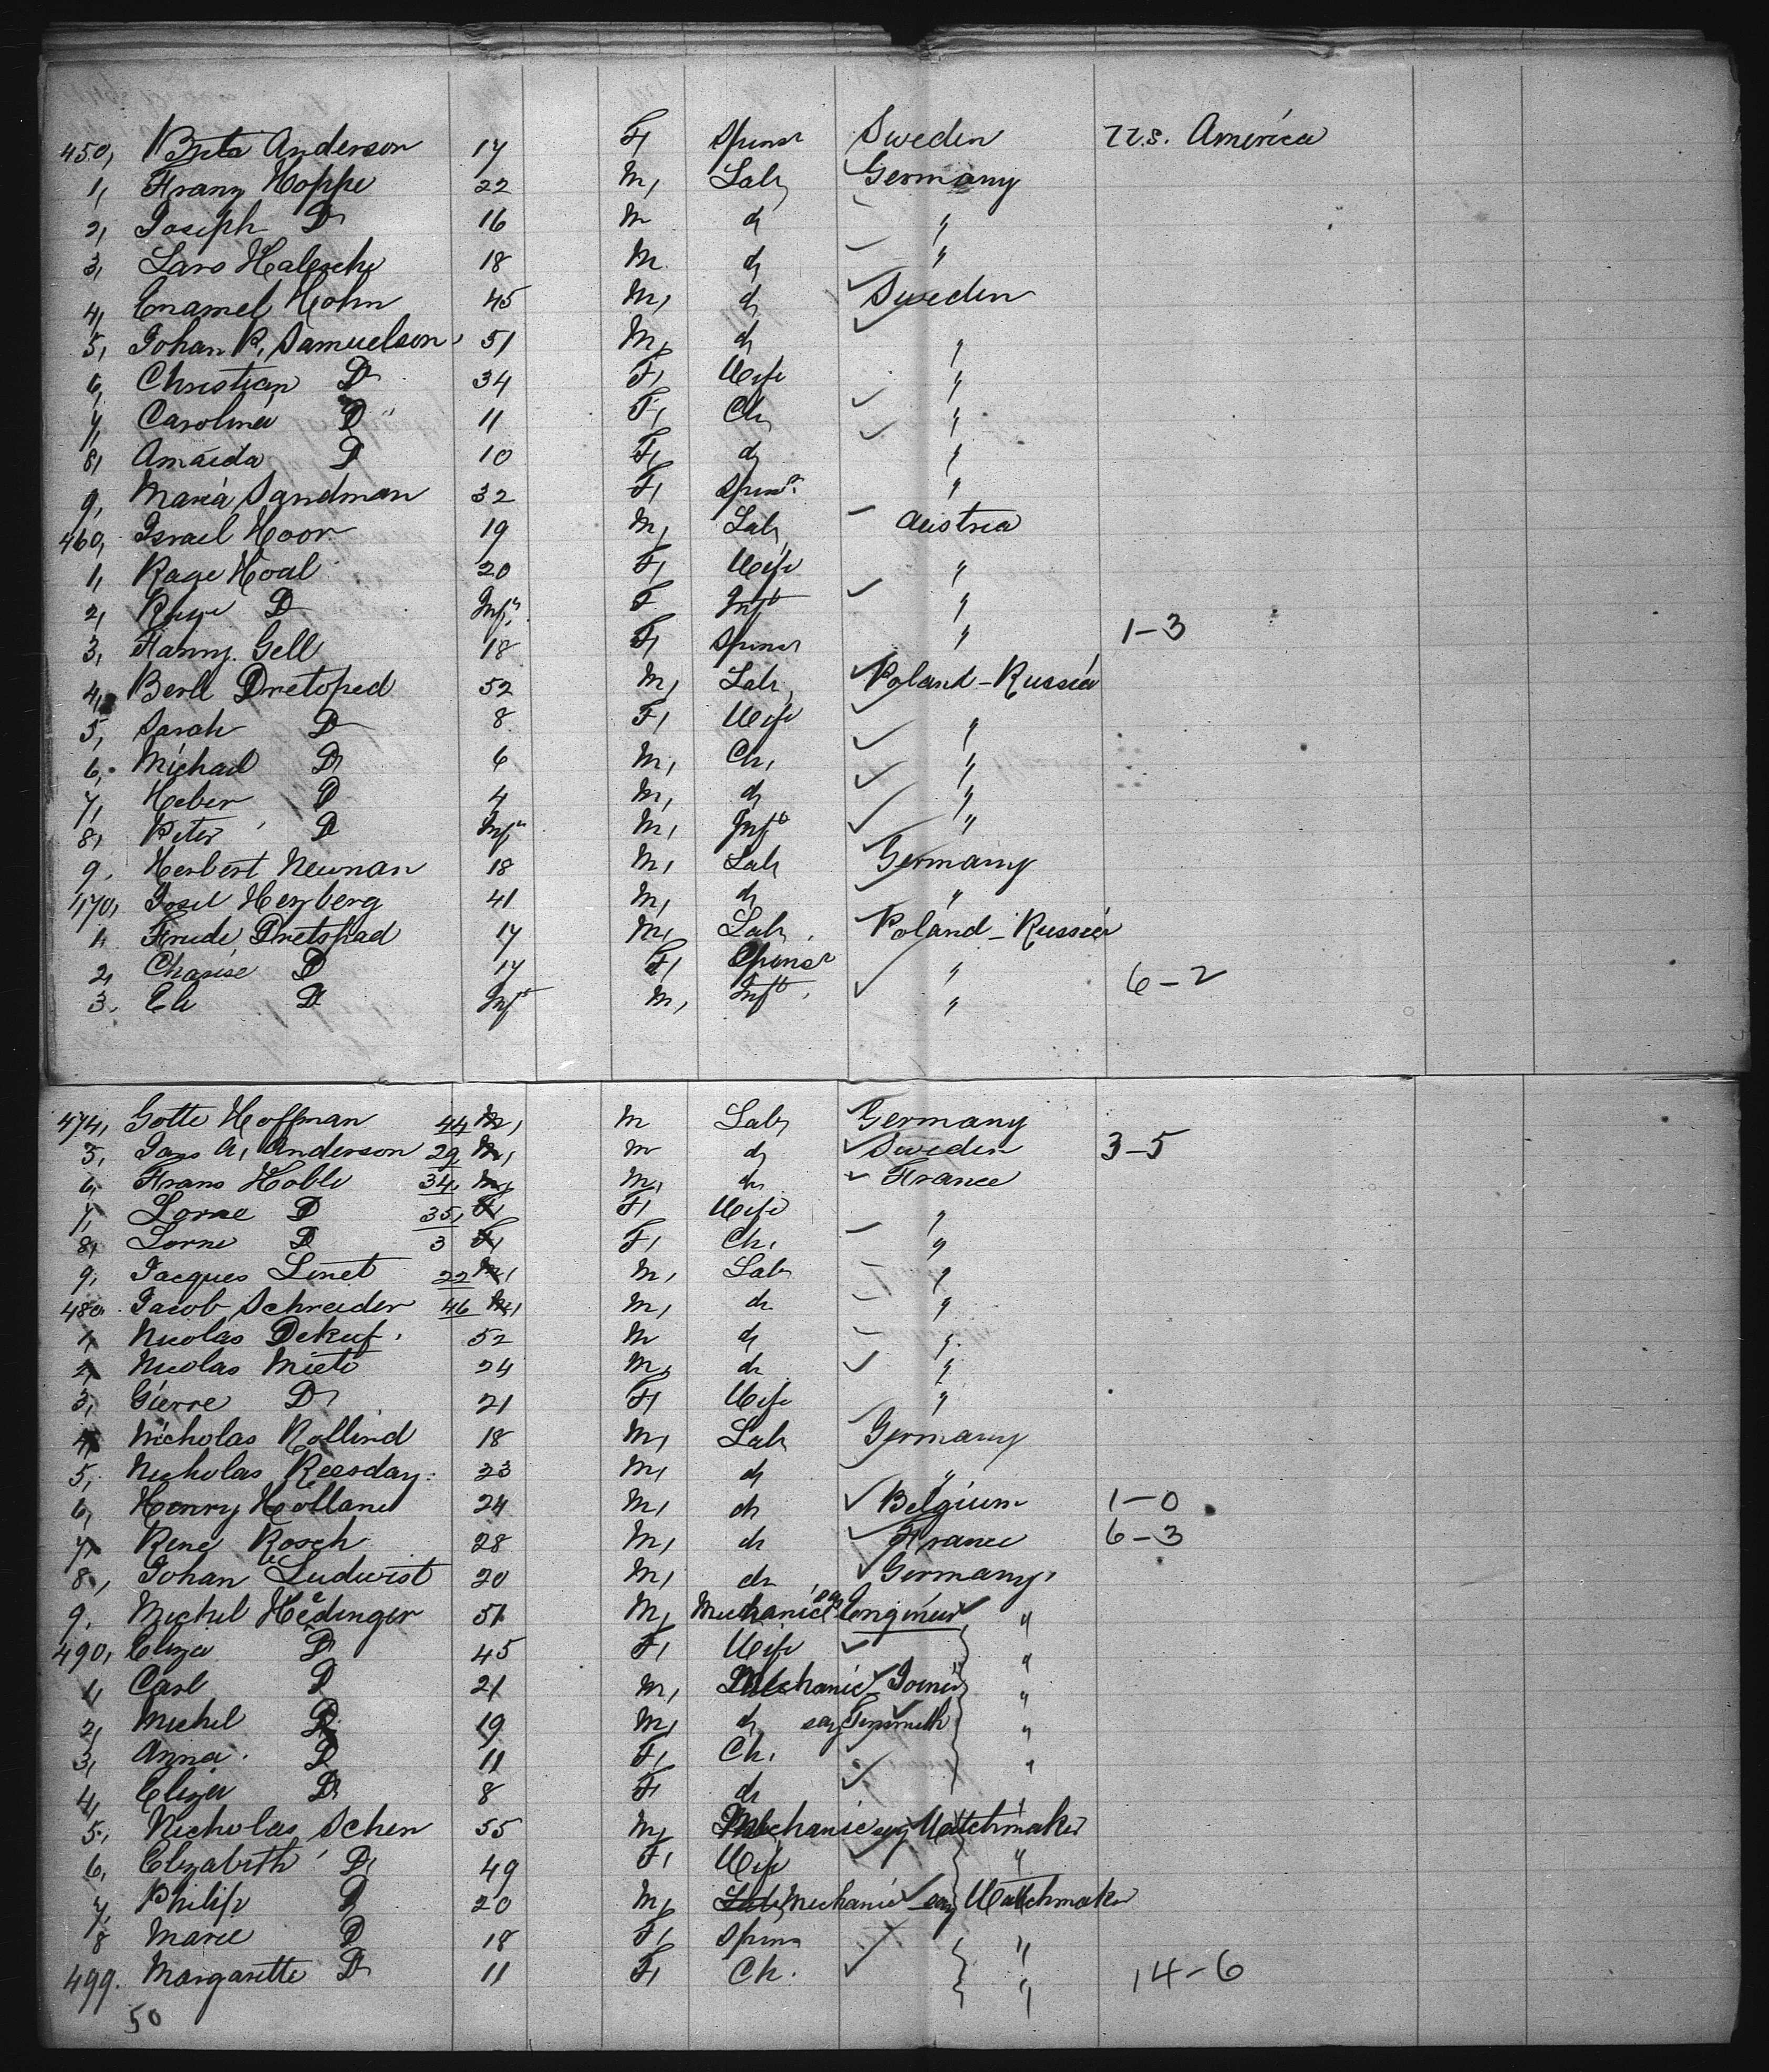 450, Brita Anderson 17 F, Spinsr Sweden U.S. America
1, Franz Hoppe 22 M, Labr Germany
2, Joseph Do 16 M do "
3, Lars Halesche 18 M. do "
4, Enamel Hohn 45 M, do Sweden
5, Johan P. Samuelson, 51 M, do "
6, Christian Do 34 F, Wife "
7, Carolina Do 11 F, Ch, "
8, Amaida Do 10 F, do "
9, Maria Sandman 32 F, Spinsr "
460, Israel Hoor 19 M, Labr Austria
1, Rage Hoal 20 F, Wife "
2, Do Inft F Inft "
3, Fanny Gell 18 F, Spinsr " 1-3
4, Berel Dretoped 52 M, Labr, Poland-Russia
5, Sarah Do 8 F, Wife "
6, Michael Do 6 M, Ch, "
7, Heber Do 4 M, do "
8, Peter Do Inft M, Inft "
9, Herbert Neunan 18 M, Labr Germany
470, Josel Herzberg 41 M, do "
1, Frude Dretspad 17 M, Labr, Poland-Russia
2, Chasise Do 17 F, Spinsr " 6-2
3, Eli Do Inft M, Inft "
474, Gotte Hoffman 44 M, M Labr Germany
5, Jans A, Anderson 29 M, M do Sweden 3-5
6, Frans Hoble 34, M, M, do France
7, Lorne Do 35, F, F, Wife "
8, Lorne Do 3 F, F, Ch, "
9, Jacques Linet 22 M, M, Labr "
480 Jacob Schreider 46 M, M, do "
1, Nicolas Dekuf. 52 M do "
2, Nicolas Mieto 24 M, do "
3, Gierre Do 21 F, Wife "
4, Nicholas Rollind 18 M, Labr Germany
5, Nicholas Reesday. 23 M, do "
6, Henry Holland 24 M, do Belgium 1-0
7, René Rosch 28 M, do France 6-3
8, Johan Ludwist 20 M, do Germany,
9, Michel Hedinger 51 M, Mechanic say Engineer "
490, Eliza Do 45 F, Wife "
1, Carl Do 21 M, Mechanic Joiner "
2, Michel Do 19 M, do say Tinsmith "
3, Anna. Do 11 F, Ch, "
4, Eliza Do 8 F, do "
5, Nicholas Schen 55 M, Mechanic say Watchmaker
6, Elizabeth Do 49 F, Wife "
7, Philip Do 20 M, Labr Mechanic say Watchmaker
8 Marie Do 18 F, Spins "
499. Margarette Do 11 F, Ch. " 14-6
50